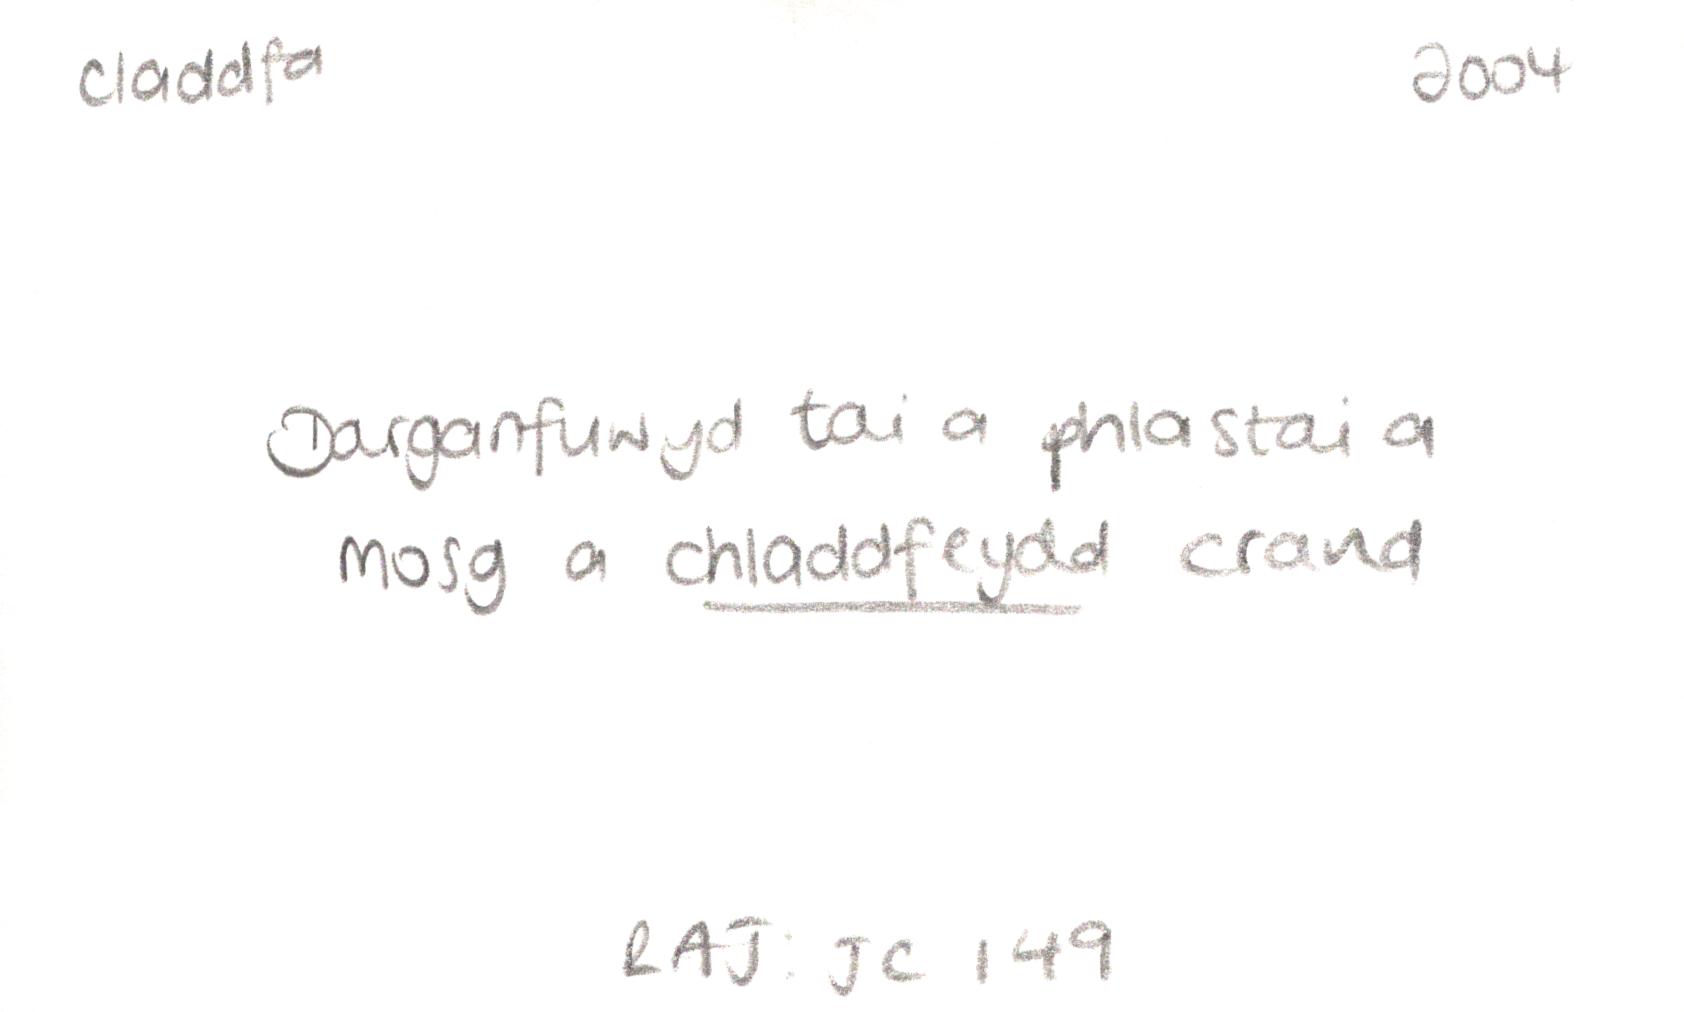 claddfa 2004
Darganfuwyd tai a phlastai a
mosg a chladdfeydd crand
RAJ: JC 149